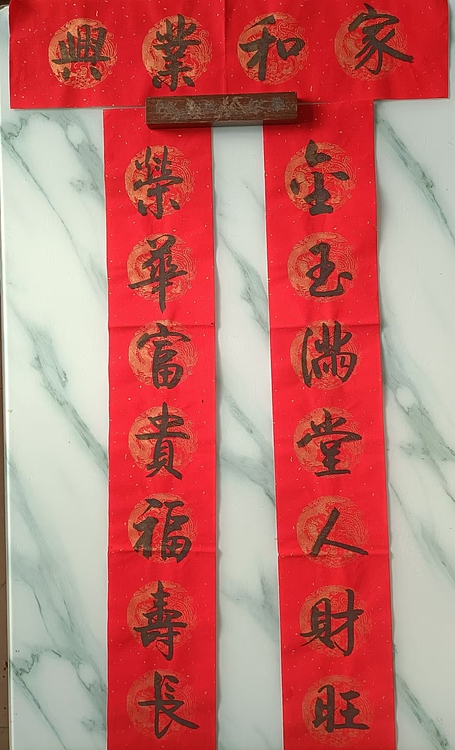 家和業興
金玉滿堂人財旺
榮華富貴福壽長